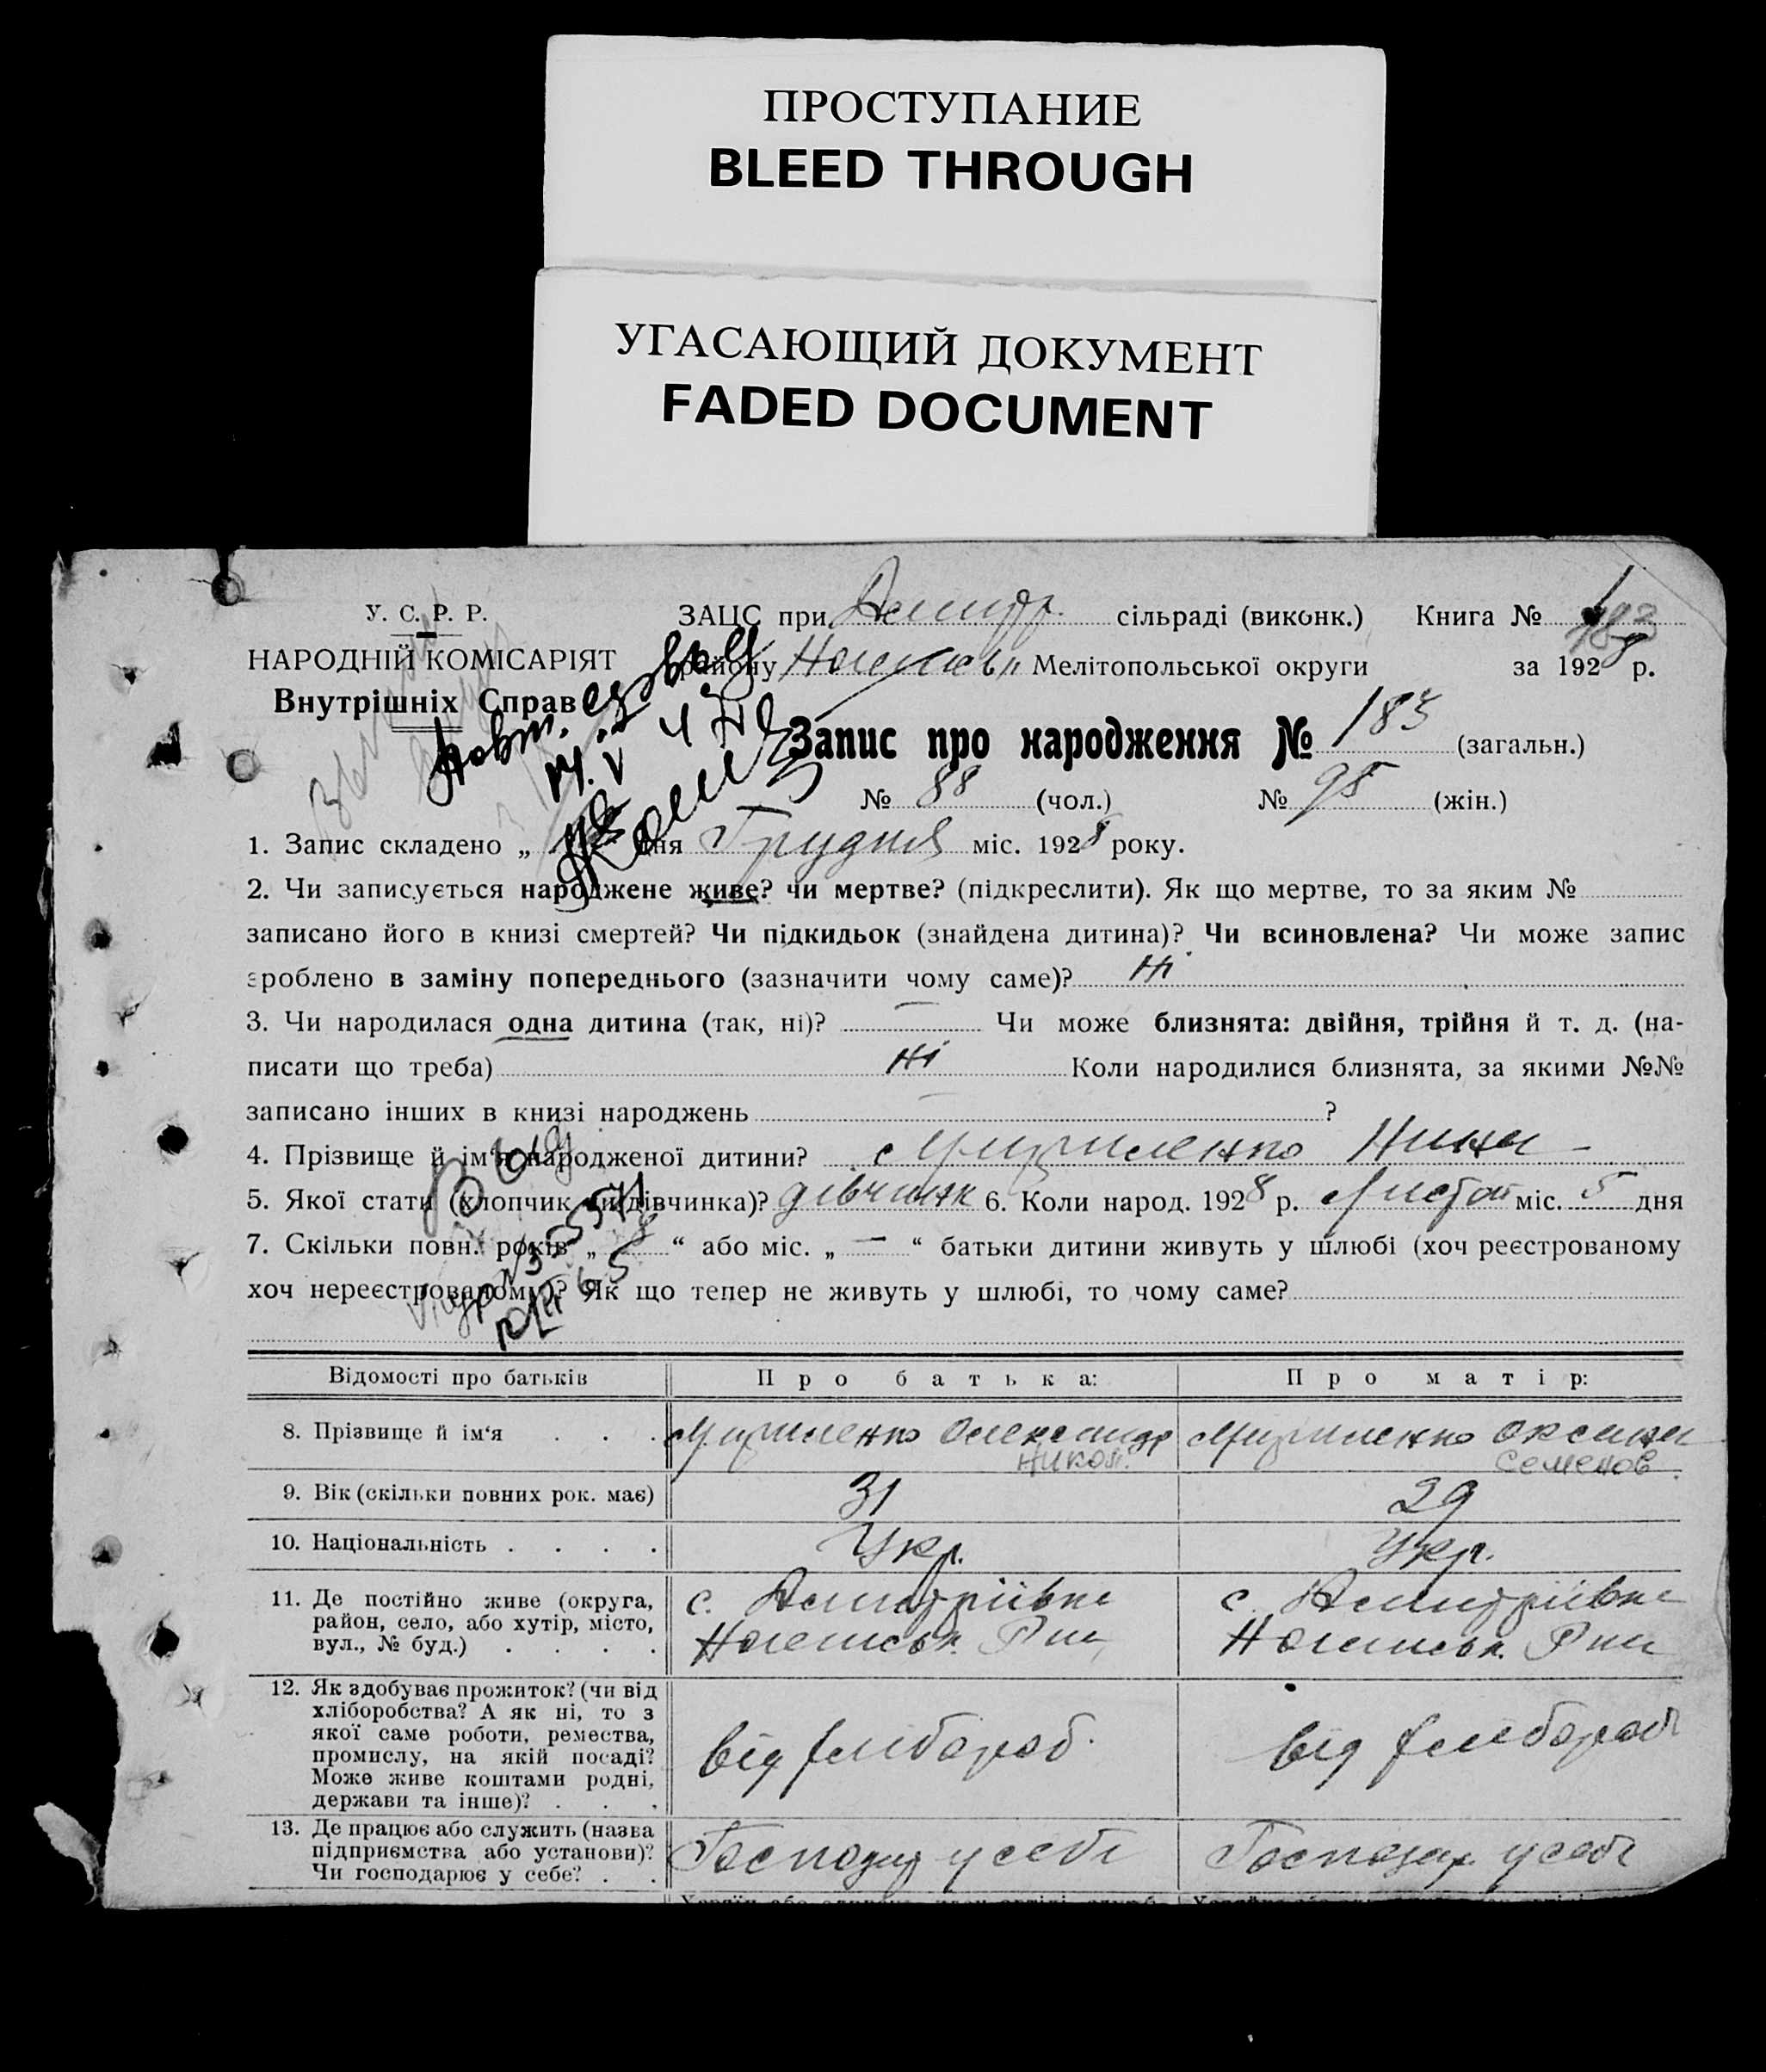 ПРОСТУПАНИЕ
BLEED THROUGH
УГАСАЮЩИЙ ДОКУМЕНТ
FADED DOCUMENT
У. С. Р. Р.
НАРОДНІЙ КОМІСАРІЯТ
Внутрішніх Справ
ЗАЦС при сільраді (виконк.) Книга №
району Мелітопольської округи за 1928 р.
Запис про народження № 183 (загальн.)
№ 88 (чол.) № 95 (жін.)
1. Запис складено „ дня Грудня міс. 1928 року.
2. Чи записується народжене живе? чи мертве? (підкреслити). Як що мертве, то за яким №
записано його в книзі смертей? Чи підкидьок (знайдена дитина)? Чи всиновлена? Чи може запис
зроблено в заміну попереднього (зазначити чому саме)? Ні
3. Чи народилася одна дитина (так, ні)? — Чи може близнята: двійня, трійня й т. д. (на-
писати що треба) Ні Коли народилися близнята, за якими №№
записано інших в книзі народжень — ?
4. Прізвище й ім‘я народженої дитини? Нина —
5. Якої стати (хлопчик чи дівчинка)? дівчинк 6. Коли народ. 1928 р. Листоп міс. 5 дня
7. Скільки повн. років „ “ або міс. „ — “ батьки дитини живуть у шлюбі (хоч реєстрованому
хоч нереєстрованому)? Як що тепер не живуть у шлюбі, то чому саме?
Відомості про батьків Про батька: Про матір:
8. Прізвище й ім‘я . . . Олександр Никол. Оксана Семенов.
9. Вік (скільки повних рок. має) 31 29
10. Національність . . . . Укр. Укр.
11. Де постійно живе (округа,
район, село, або хутір, місто,
вул., № буд.) . . . .
с. Дмитріівка
с. Дмитріівка
12. Як здобуває прожиток? (чи від
хліборобства? А як ні, то з
якої саме роботи, ремества,
промислу, на якій посаді?
Може живе коштами родні,
держави та інше)? . . .
від хлібороб.
від хлібороб
13. Де працює або служить (назва
підприємства або установи)?
Чи господарює у себе? . .
Господар у себе
Господар у себе